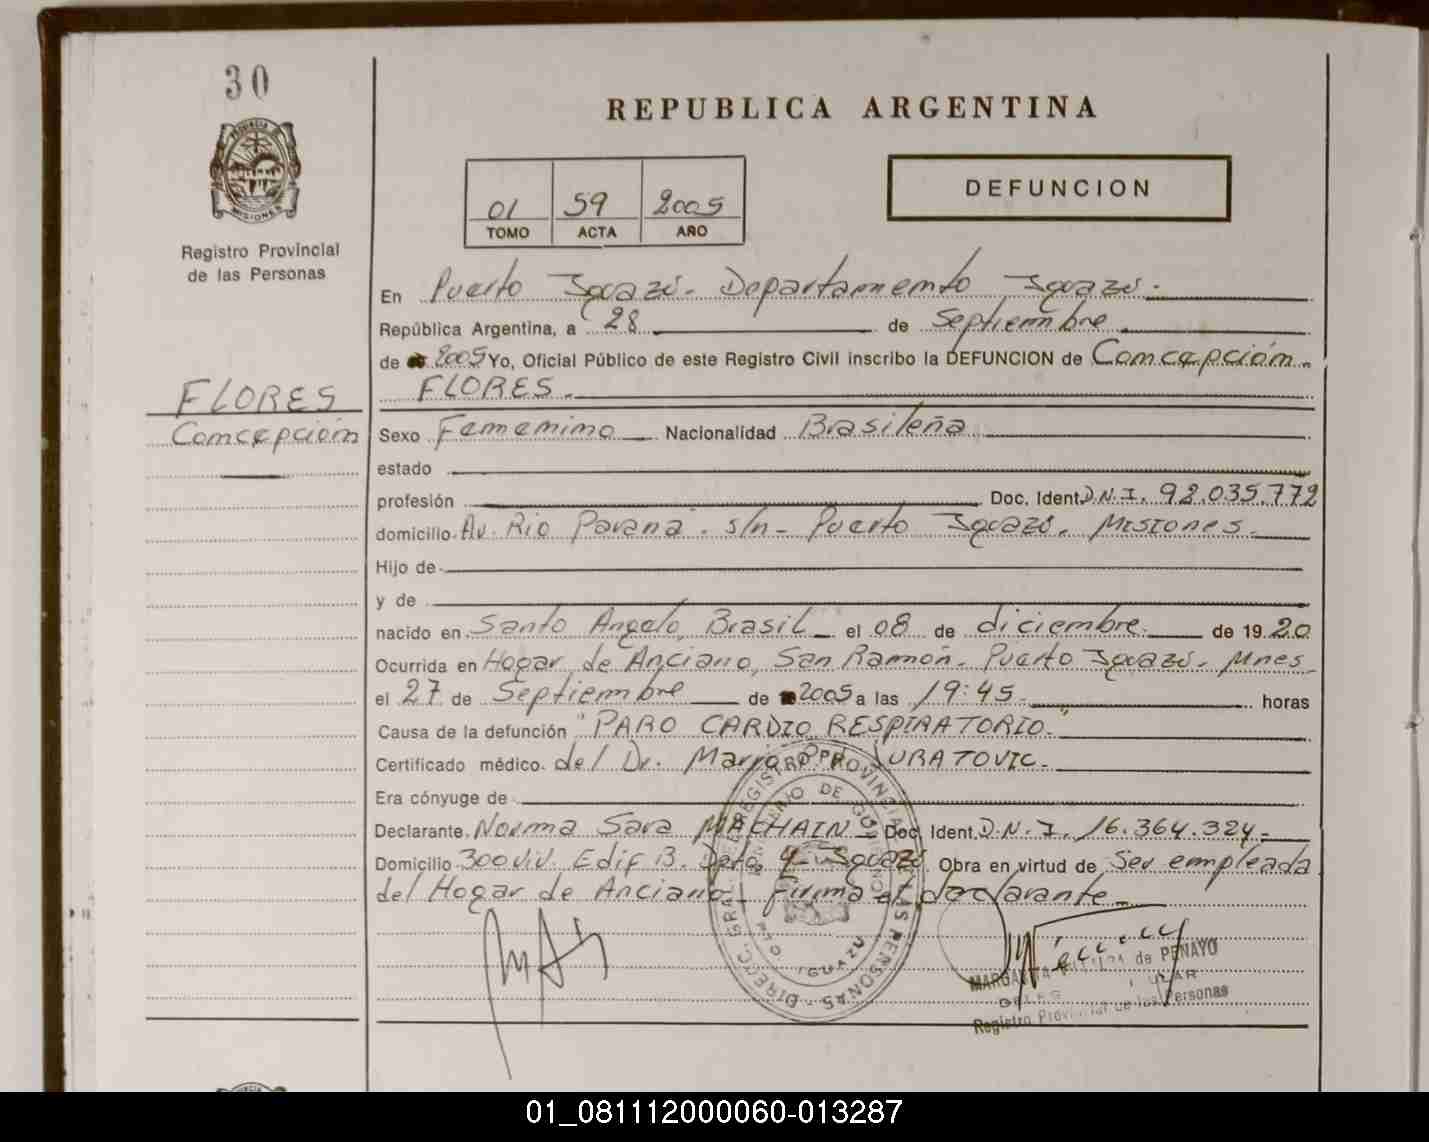 30
PROVINCIA DE
MISIONES
Registro Provincial
de las Personas
FLORES
Concepción
REPUBLICA ARGENTINA
01 59 2005
TOMO ACTA AÑO
DEFUNCION
En Puerto Iguazú - Departamento Iguazú.
República Argentina, a 28 de Septiembre
de 2005 Yo, Oficial Público de este Registro Civil inscribo la DEFUNCION de Concepción
FLORES.
Sexo Femenino Nacionalidad Brasileña
estado
profesión Doc. Ident. D.N.I. 92.035.772
domicilio Av. Rio Parana s/n - Puerto Iguazú. MISIONES.
Hijo de
y de
nacido en Santo Angelo, Brasil el 08 de diciembre de 1920
Ocurrida en Hogar de Anciano, San Ramón. Puerto Iguazú. Mnes.
el 27 de Septiembre de 2005 a las 19:45 horas
Causa de la defunción "PARO CARDIO RESPIRATORIO."
Certificado médico del Dr. Mario JURATOVIC.
Era cónyuge de
Declarante Norma Sara MACHAIN - Doc. Ident. D.N.I. 16.364.324.-
Domicilio 300 Viv. Edif B. Dpto 4 - Iguazú. Obra en virtud de Ser empleada
del Hogar de Anciano - Firma el declarante -
DIREC. GRAL. DEL REGISTRO PROVINCIAL DE LAS PERSONAS
MINISTERIO DE GOBIERNO
PTO IGUAZU
MARGARITA de PENAYO
Registro Provincial de las Personas
01_081112000060-013287